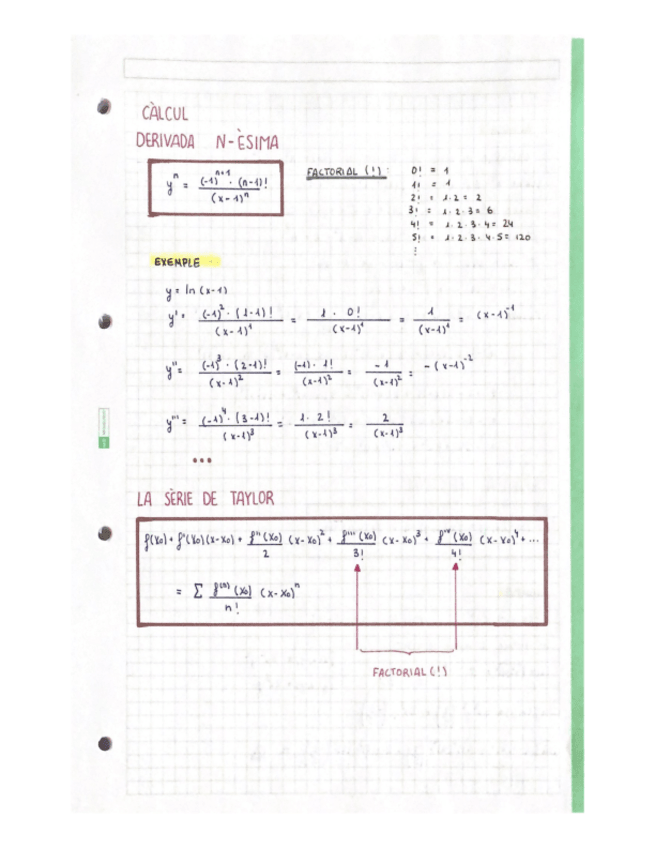 CÀLCUL
DERIVADA N-ÈSIMA
yⁿ = (-1)ⁿ⁺¹ · (n-1)! / (x-1)ⁿ
FACTORIAL (!):
0! = 1
1! = 1
2! = 1·2 = 2
3! = 1·2·3 = 6
4! = 1·2·3·4 = 24
5! = 1·2·3·4·5 = 120
⋮
EXEMPLE
y = ln (x-1)
y' = (-1)² · (1-1)! / (x-1)¹ = 1 · 0! / (x-1)¹ = 1 / (x-1)¹ = (x-1)⁻¹
y'' = (-1)³ · (2-1)! / (x-1)² = (-1) · 1! / (x-1)² = -1 / (x-1)² = -(x-1)⁻²
y''' = (-1)⁴ · (3-1)! / (x-1)³ = 1 · 2! / (x-1)³ = 2 / (x-1)³
...
LA SÈRIE DE TAYLOR
f(x₀) + f'(x₀)(x-x₀) + f''(x₀) / 2 (x-x₀)² + f'''(x₀) / 3! (x-x₀)³ + f''''(x₀) / 4! (x-x₀)⁴ + ...
= Σ f⁽ⁿ⁾(x₀) / n! (x-x₀)ⁿ
FACTORIAL (!)